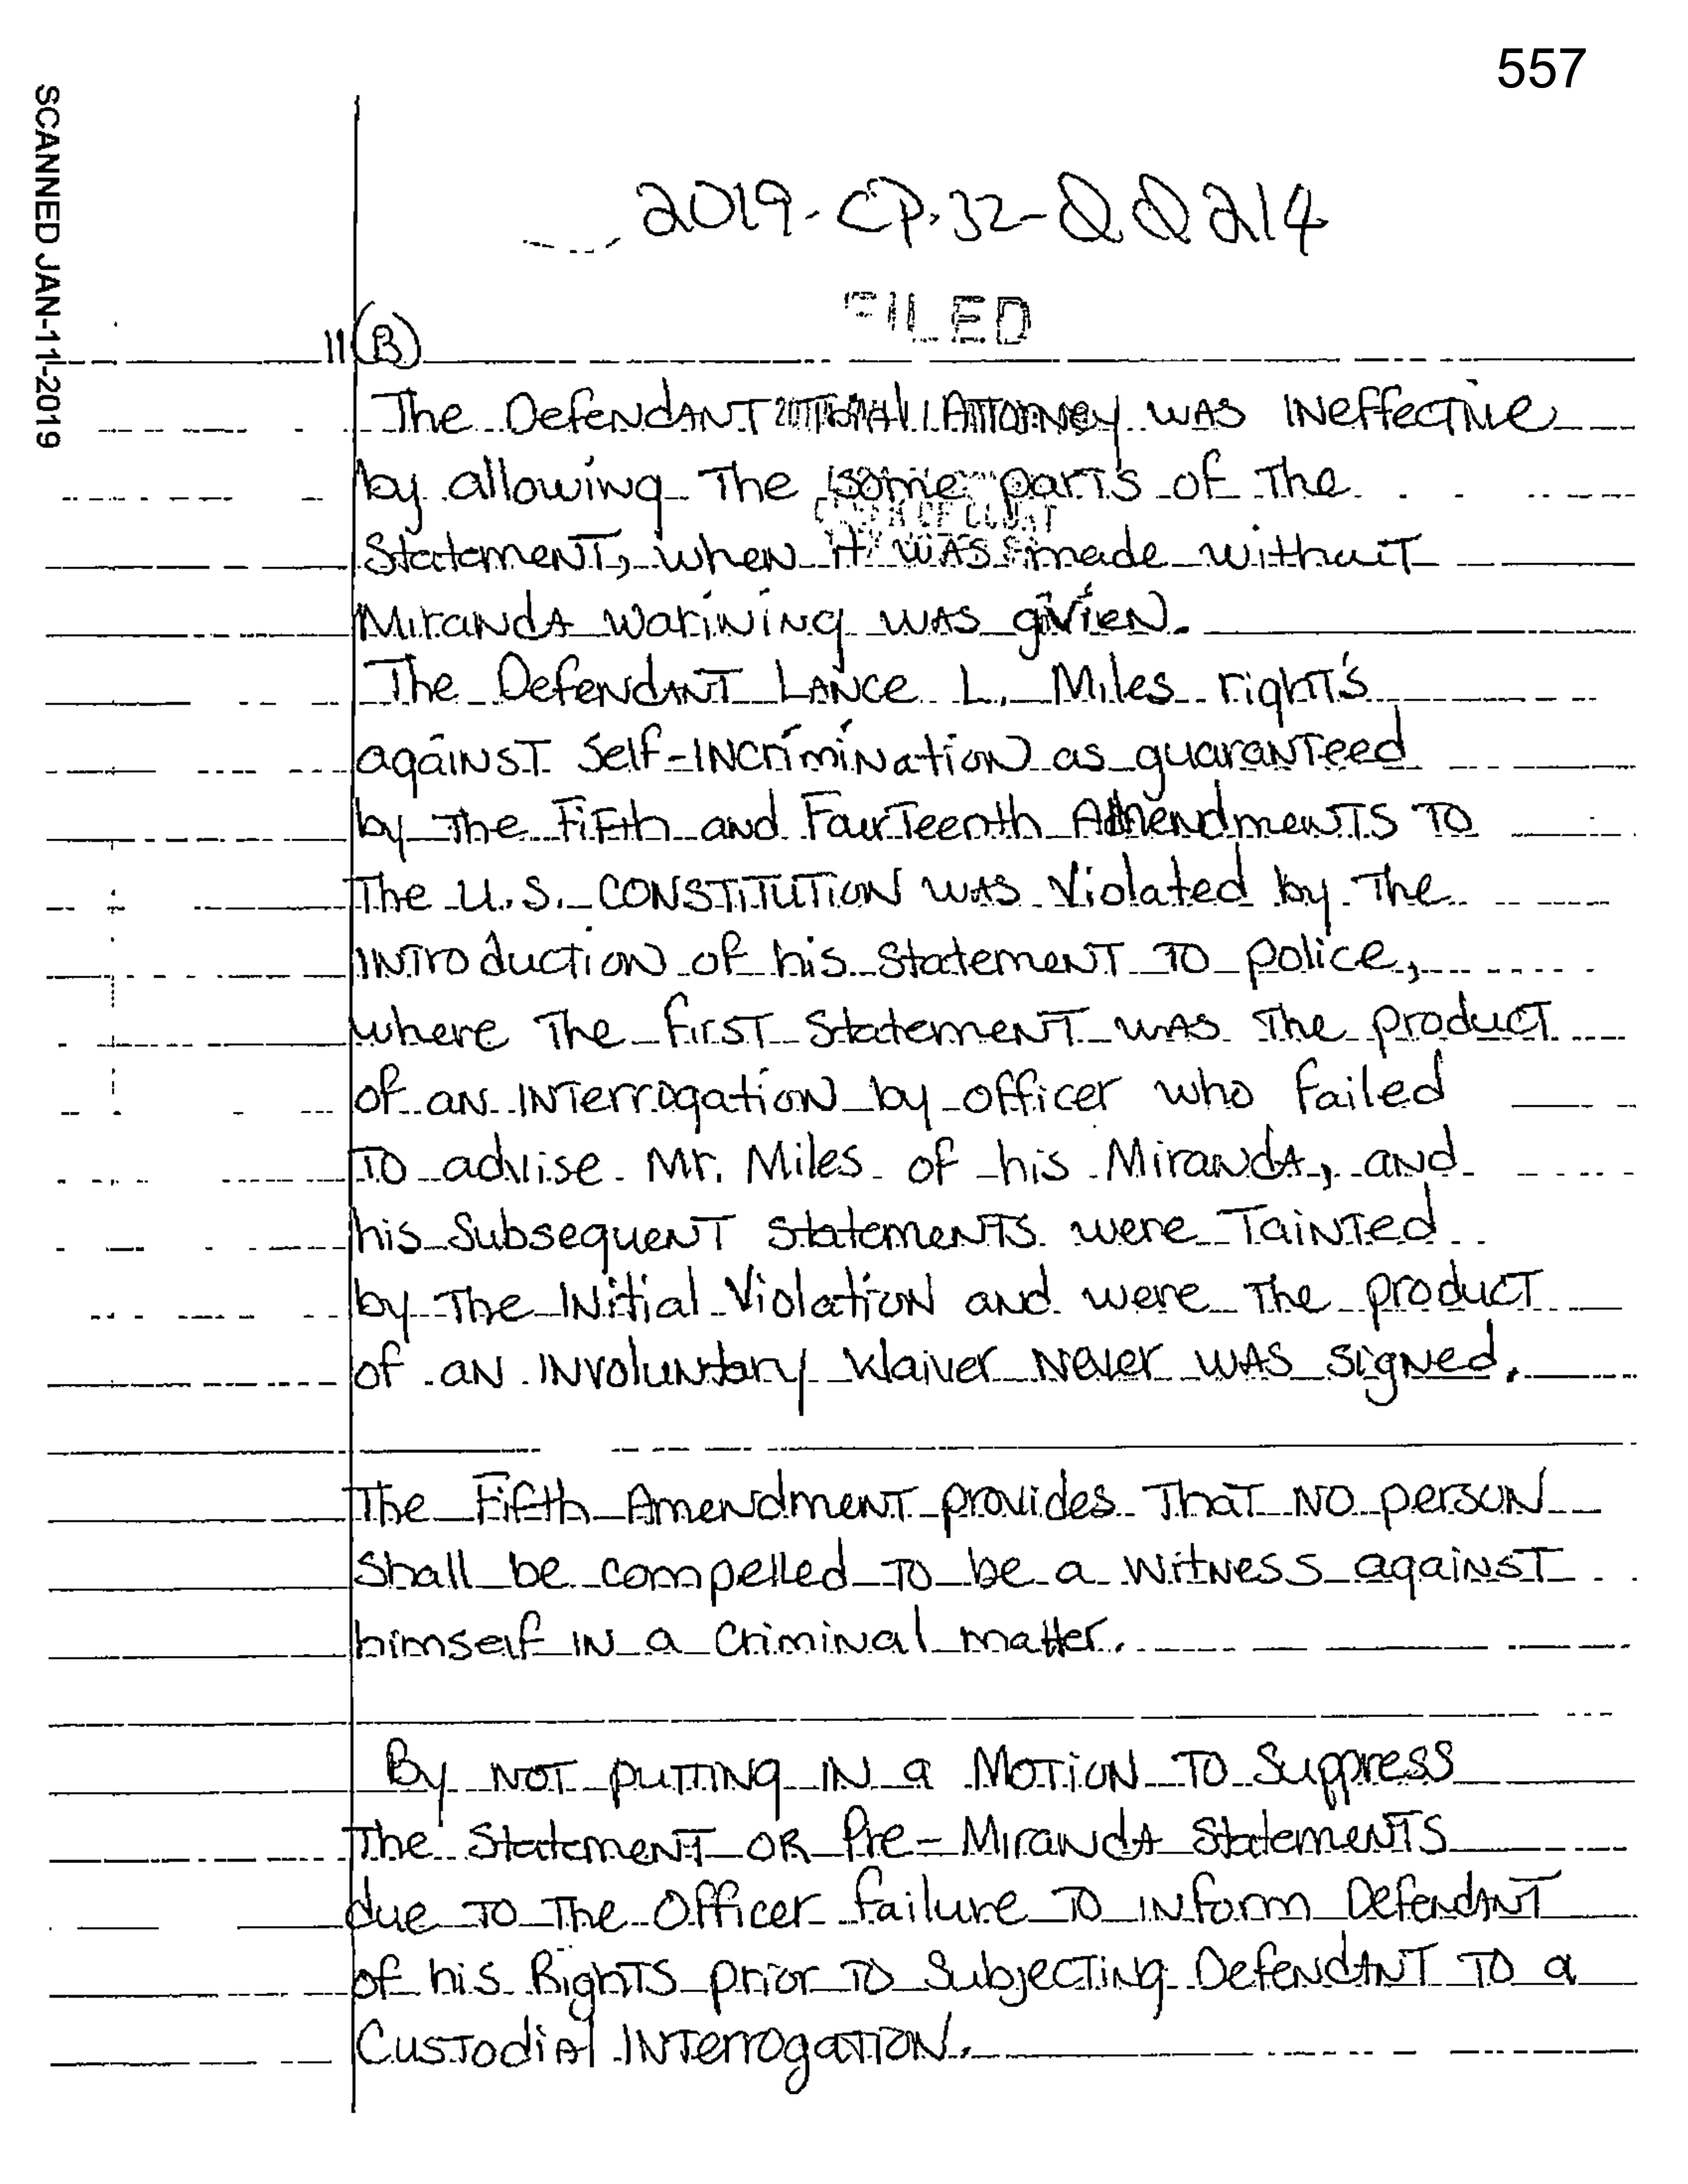 557
SCANNED JAN-11-2019
2019-CP-32-00214
FILED
11(B)
The Defendant Trial Attorney was ineffective
by allowing The some parts of The
Statement, when it was made without
Miranda warining was givien.
The Defendant Lance L. Miles right's
against Self-Incrimination as guaranteed
by The Fifth and Fourteenth Amendments To
The U.S. Constitution was violated by The
introduction of his Statement To police,
where The first Statement was The product
of an interrogation by officer who failed
To advise Mr. Miles of his Miranda, and
his Subsequent Statements were Tainted
by The initial violation and were The product
of an involuntary Waiver never was signed.
The Fifth Amendment provides That no person
Shall be compelled To be a witness against
himself in a criminal matter.
By not putting in a Motion To Suppress
The Statement OR Pre-Miranda Statements
due To The Officer failure To inform Defendant
of his Rights prior To Subjecting Defendant To a
Custodial Interrogation.